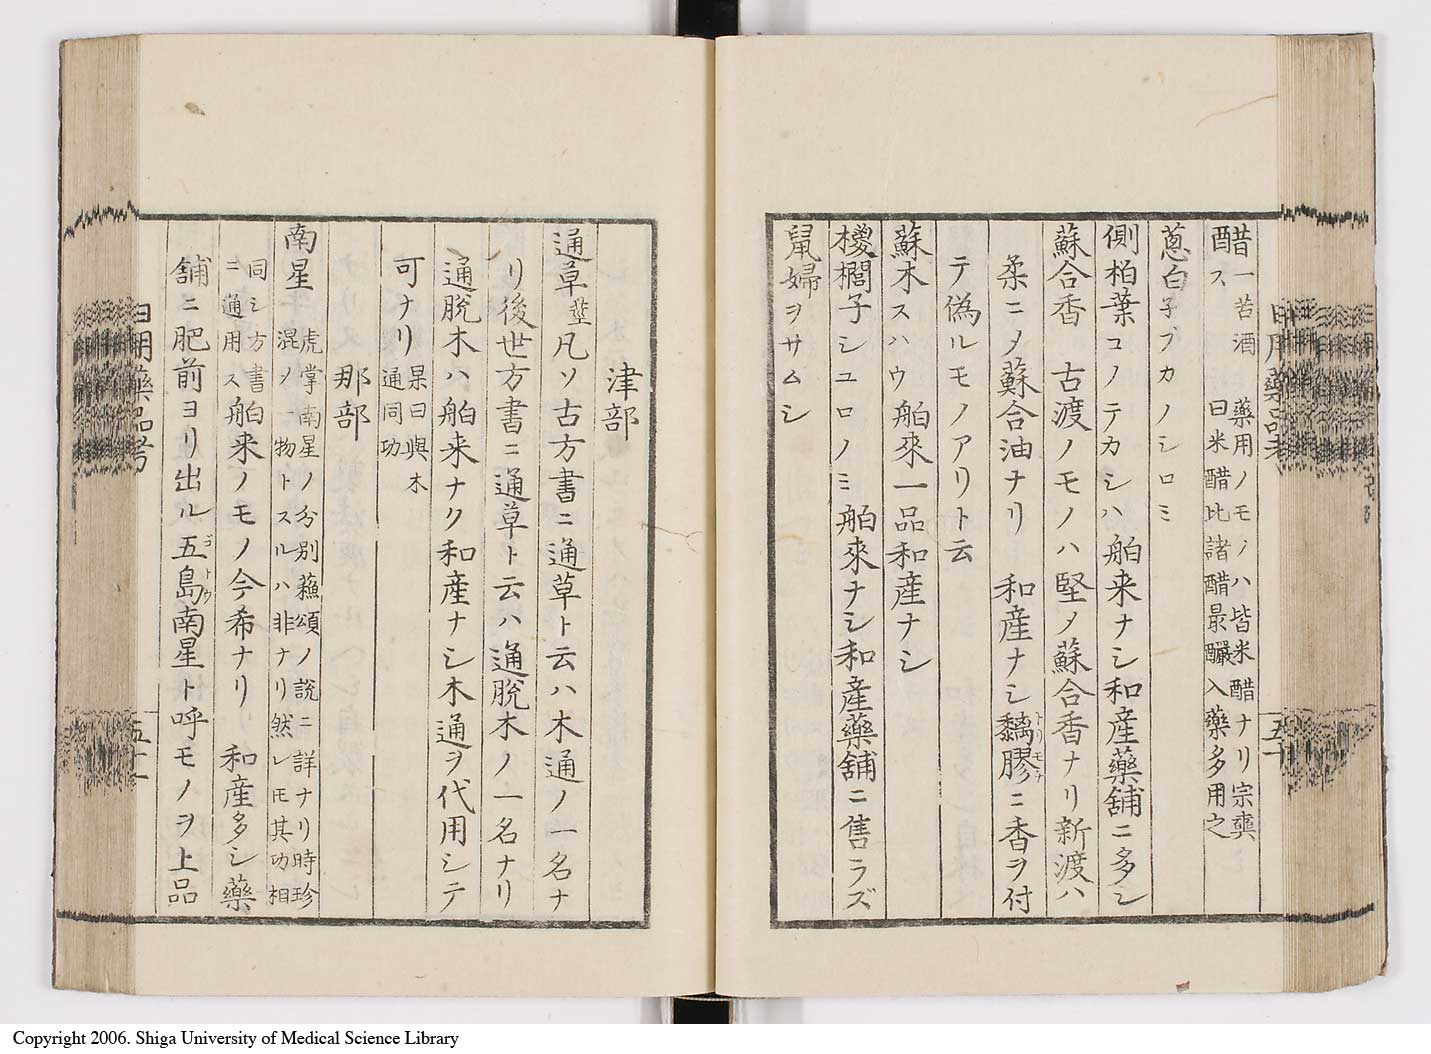 醋 一ス 苦酒 藥用ノモノハ皆米醋ナリ宗奭
曰米醋比諸醋最釅入藥多用之
蔥白 子ブカノシロミ
側柏葉 コノテカシハ 舶来ナシ和産藥舗ニ多シ
蘇合香 古渡ノモノハ堅メ蘇合香ナリ新渡ハ
柔ニメ蘇合油ナリ 和産ナシ黐膠ニ香ヲ付
トリモチ
テ偽ルモノアリト云
蘇木 スハウ 舶來一品和産ナシ
椶櫚子 シユロノミ 舶來ナシ和産藥舗ニ售ラズ
鼠婦 ヲサムシ
日用藥品考
五十
津部
通草 凡ソ古方書ニ通草ト云ハ木通ノ一名ナ
リ後世方書ニ通草ト云ハ通脱木ノ一名ナリ
通脱木ハ舶来ナク和産ナシ木通ヲ代用シテ
可ナリ 杲曰與木
通同功
那部
南星 虎掌南星ノ分別蘓頌ノ説ニ詳ナリ時珍
混メ一物トスルハ非ナリ然レ𪜈其功相
同シ方書
ニ通用ス 舶来ノモノ今希ナリ 和産多シ藥
舗ニ肥前ヨリ出ル五島南星ト呼モノヲ上品
ゴトウ
日用藥品考
五十一
Copyright 2006. Shiga University of Medical Science Library